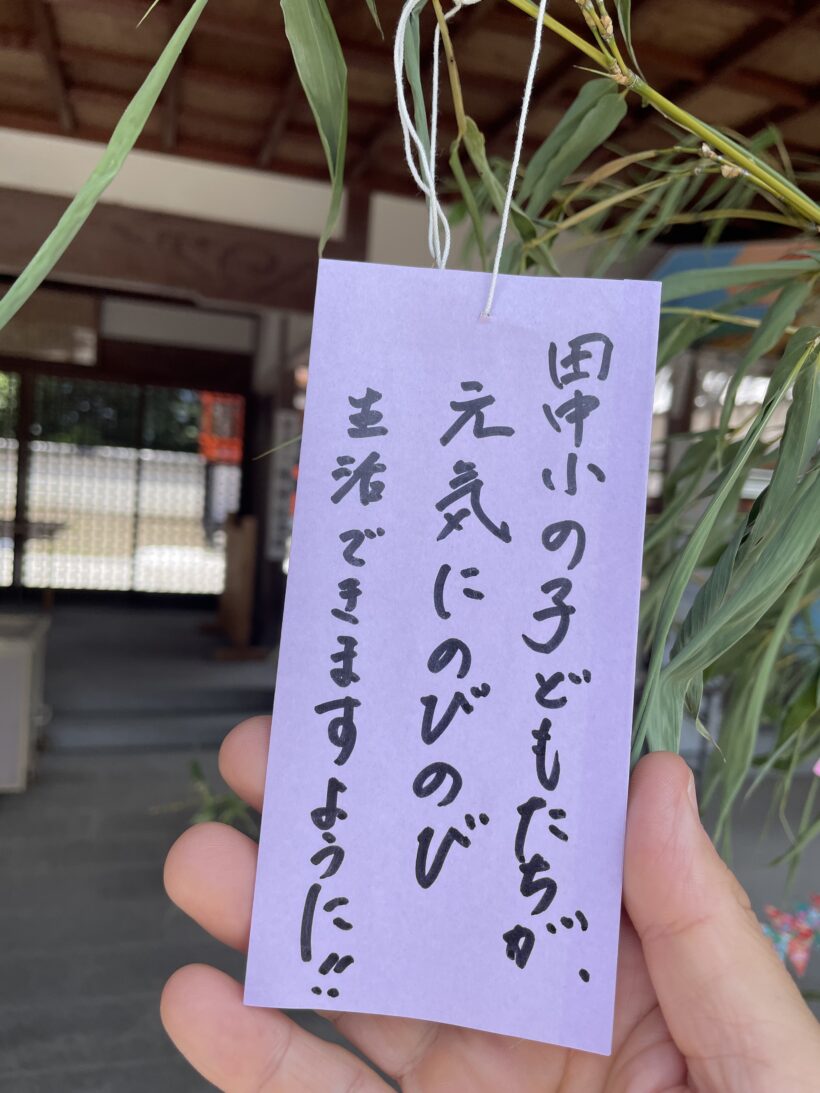 田中小の子どもたちが、
元気にのびのび
生活できますように!!